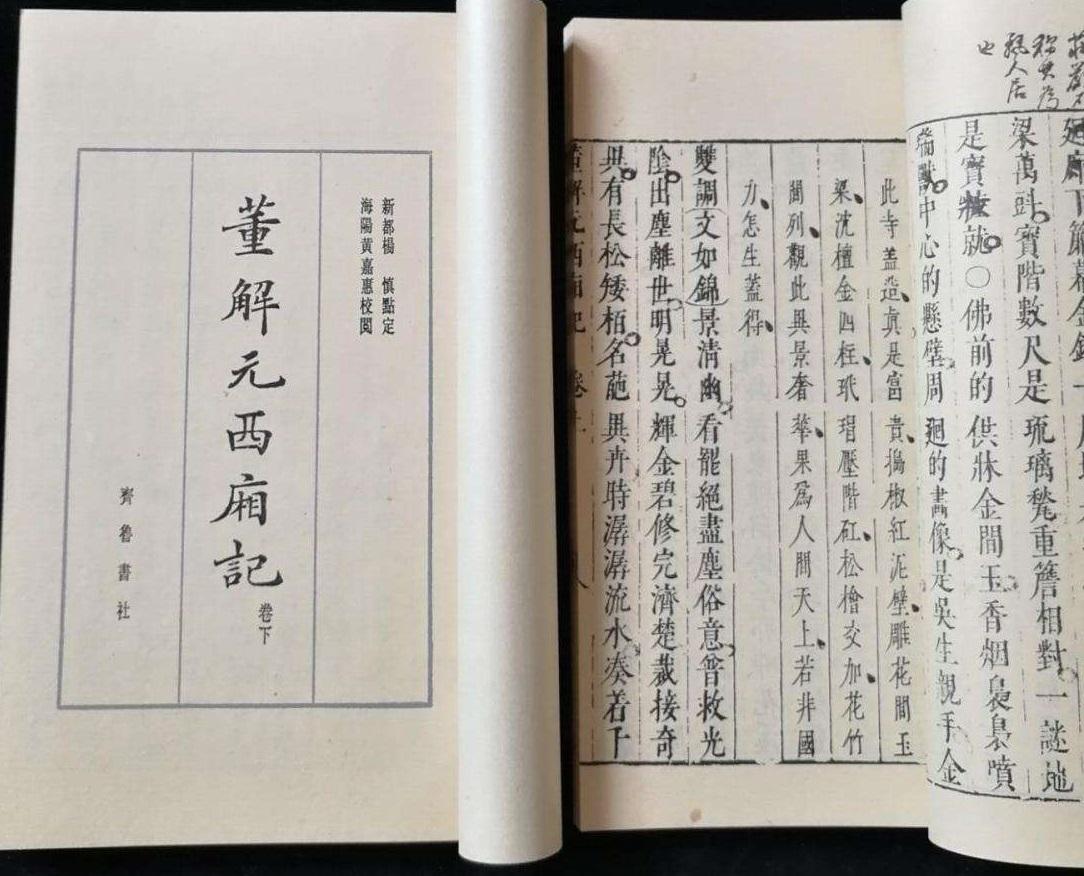 新都楊　慎點定
海陽黃嘉惠校閱
董解元西廂記
卷下
齊魯書社
人居
也
廊下簾幕金
梁萬鬪寶階數尺是琉璃甃重簷相對一謎地
是寶粧就〇佛前的供牀金間玉香烟裊裊噴
瑞獸中心的懸壁周廻的畫像是吳生親手金
此寺蓋造真是富貴搗椒紅泥壁雕花間玉
梁沈檀金四柱玳瑁壓階矼松檜交加花竹
間列觀此異景奢華果爲人間天上若非國
力怎生蓋得
雙調文如錦景清幽看罷絕盡塵俗意曾救光
陰出塵離世明晃晃輝金碧修完濟楚裁接奇
異有長松矮栢名葩異卉時潺潺流水湊着千
董解元西廂記　卷上
八